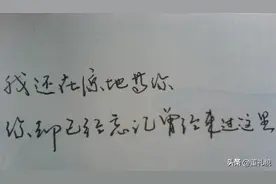 我还在原地等你
你却已经忘记曾经来过这里
头条@